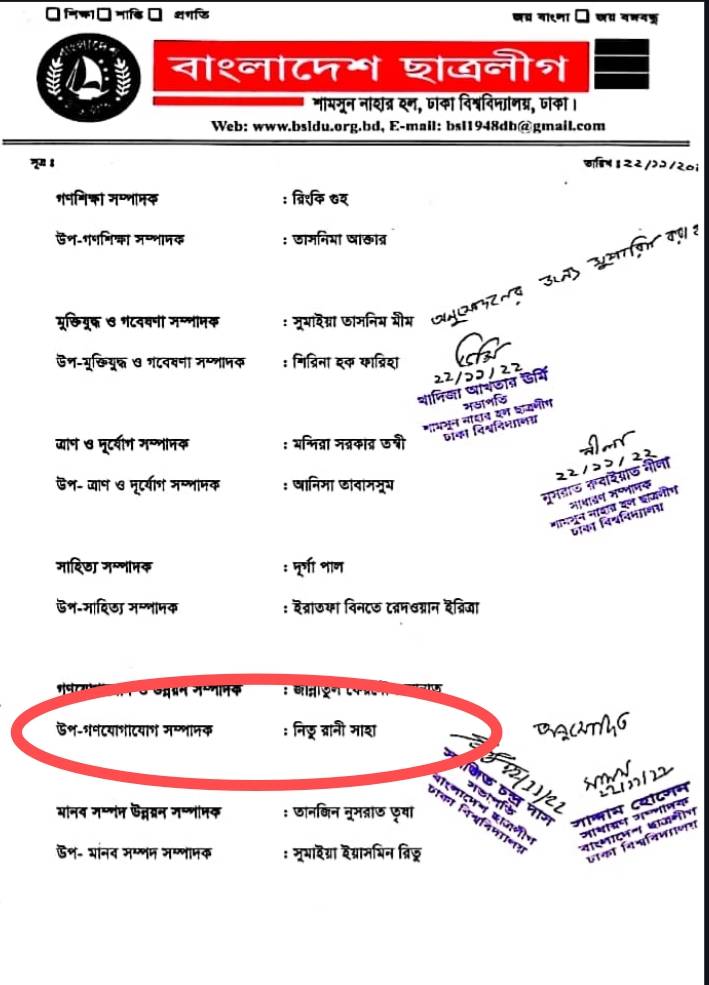 শিক্ষা শান্তি প্রগতি
জয় বাংলা জয় বঙ্গবন্ধু
বাংলাদেশ
বাংলাদেশ ছাত্রলীগ
শামসুন নাহার হল, ঢাকা বিশ্ববিদ্যালয়, ঢাকা।
Web: www.bsldu.org.bd, E-mail: bsl1948db@gmail.com
সূত্র ঃ
তারিখ ঃ ২২/১১/২০
গণশিক্ষা সম্পাদক : রিংকি গুহ
উপ-গণশিক্ষা সম্পাদক : তাসনিমা আক্তার
অনুমোদনের জন্য সুপারিশ করা
মুক্তিযুদ্ধ ও গবেষণা সম্পাদক : সুমাইয়া তাসনিম মীম
উপ-মুক্তিযুদ্ধ ও গবেষণা সম্পাদক : শিরিনা হক ফারিহা
২২/১১/২২
খাদিজা আখতার ঊর্মি
সভাপতি
শামসুন নাহার হল ছাত্রলীগ
ঢাকা বিশ্ববিদ্যালয়
ত্রাণ ও দূর্যোগ সম্পাদক : মন্দিরা সরকার তন্বী
উপ- ত্রাণ ও দূর্যোগ সম্পাদক : আনিসা তাবাসসুম
নীলা
২২/১১/২২
নুসরাত রুবাইয়াত নীলা
সাধারণ সম্পাদক
শামসুন নাহার হল ছাত্রলীগ
ঢাকা বিশ্ববিদ্যালয়
সাহিত্য সম্পাদক : দূর্গা পাল
উপ-সাহিত্য সম্পাদক : ইরাতফা বিনতে রেদওয়ান ইরিত্রা
ও উন্নয়ন সম্পাদক : জান্নাতুল
উপ-গণযোগাযোগ সম্পাদক : নিতু রানী সাহা
অনুমোদিত
২২/১১/২২
চন্দ্র দাস
সভাপতি
বাংলাদেশ ছাত্রলীগ
ঢাকা বিশ্ববিদ্যালয়
২২/১১/২২
সাদ্দাম হোসেন
সাধারণ সম্পাদক
বাংলাদেশ ছাত্রলীগ
ঢাকা বিশ্ববিদ্যালয়
মানব সম্পদ উন্নয়ন সম্পাদক : তানজিন নুসরাত তৃষা
উপ- মানব সম্পদ সম্পাদক : সুমাইয়া ইয়াসমিন রিতু